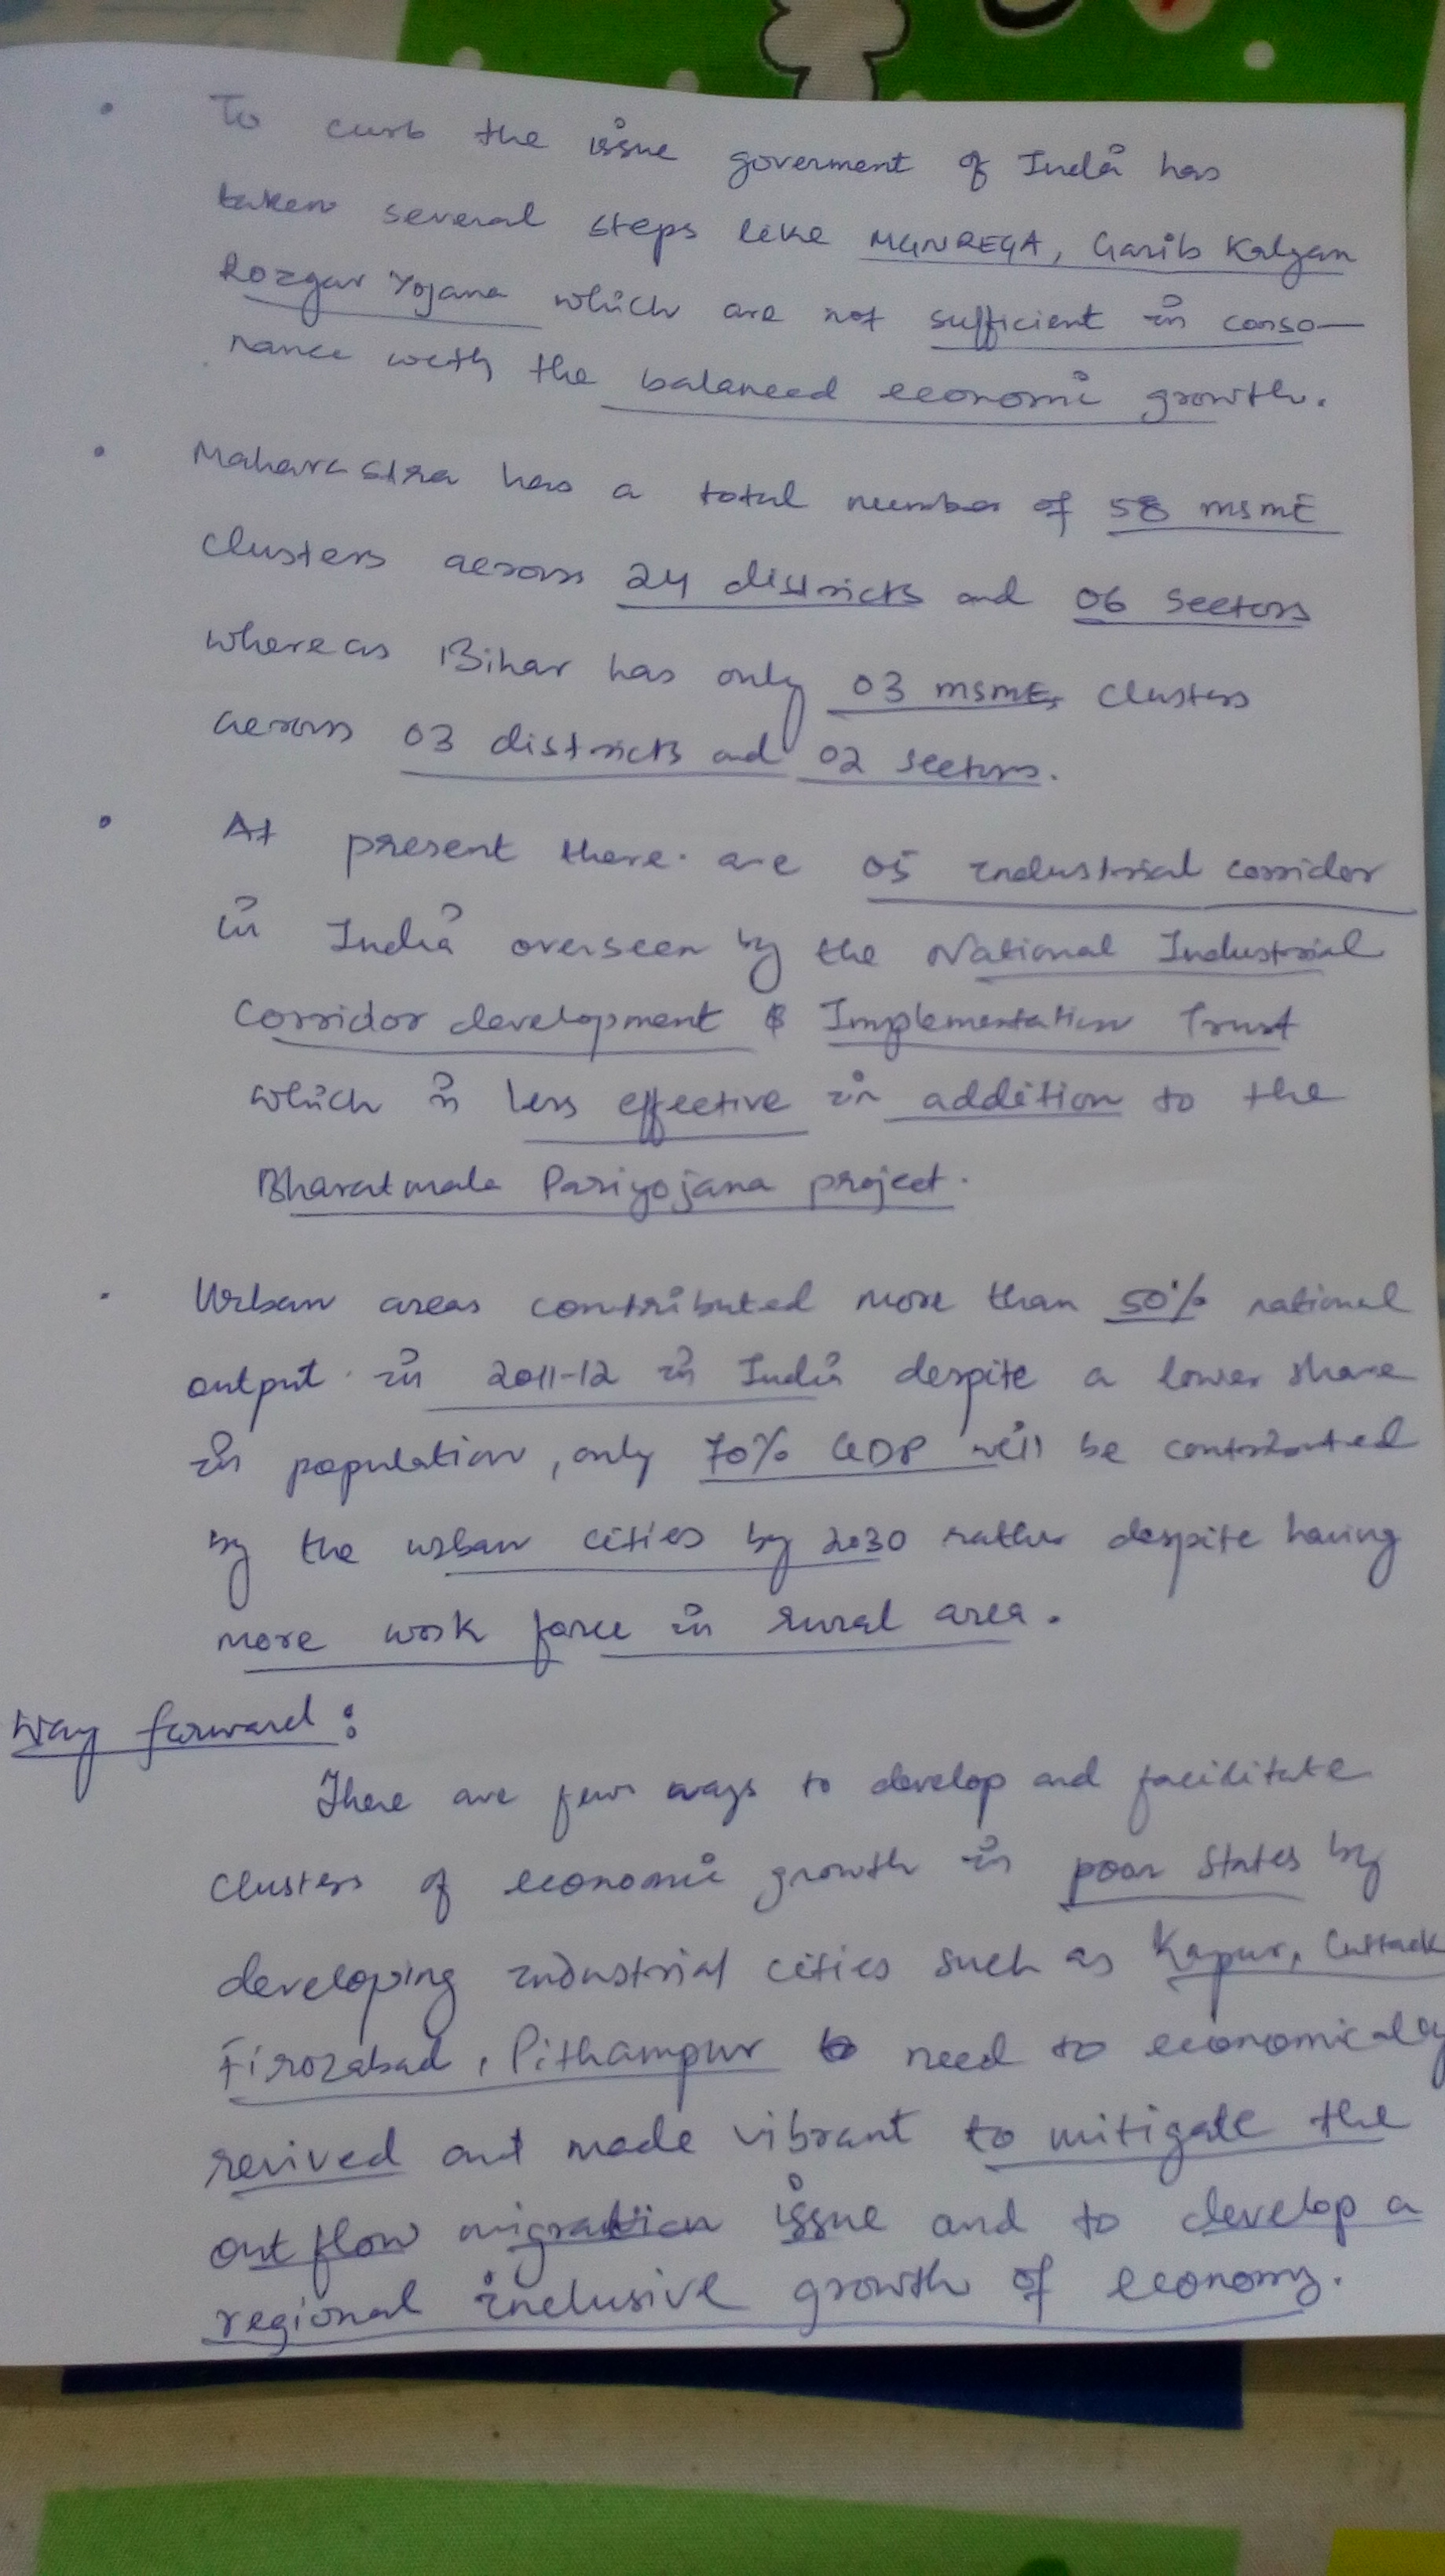 • To curb the issue goverment of India has
taken several steps like MGNREGA, Garib Kalyan
Rozgar Yojana which are not sufficient in conso-
nance with the balanced economic growth.
• Maharastra has a total number of 58 MSME
clusters across 24 districts and 06 sectors
whereas Bihar has only 03 MSME, clusters
across 03 districts and 02 sectors.
• At present there are 05 industrial corridor
in India overseen by the National Industrial
Corridor development & Implementation Trust
which is less effective in addition to the
Bharatmala Pariyojana project.
• Urban areas contributed more than 50% national
output in 2011-12 in India despite a lower share
in population, only 70% GDP will be contributed
by the urban cities by 2030 rather despite having
more work force in rural area.
Way forward:
There are few ways to develop and facilitate
clusters of economic growth in poor states by
developing industrial cities such as Kapur, Cuttack
Firozabad, Pithampur need to economically
revived and made vibrant to mitigate the
out flow migration issue and to develop a
regional inclusive growth of economy.